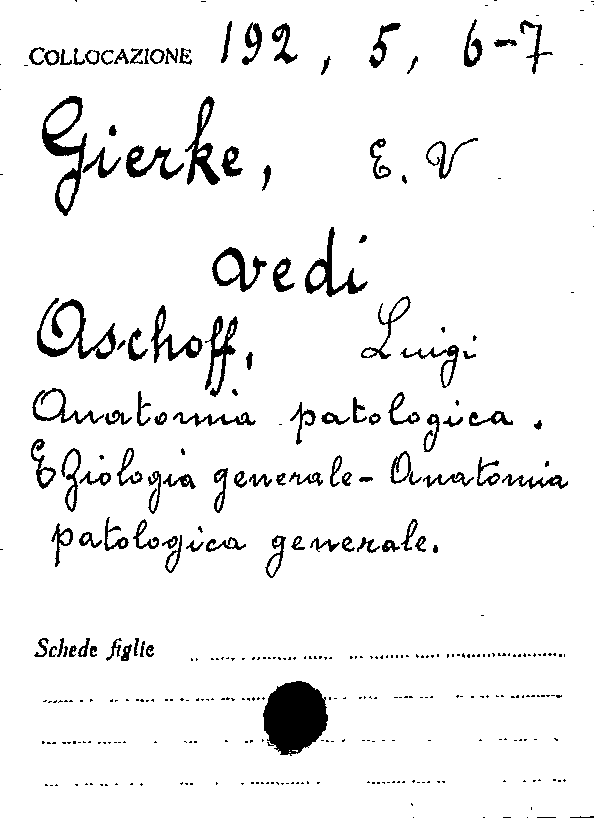 COLLOCAZIONE 192, 5, 6-7
Gierke, E. V
vedi
Aschoff, Luigi
Anatomia patologica.
Eziologia generale - Anatomia
patologica generale.
Schede figlie